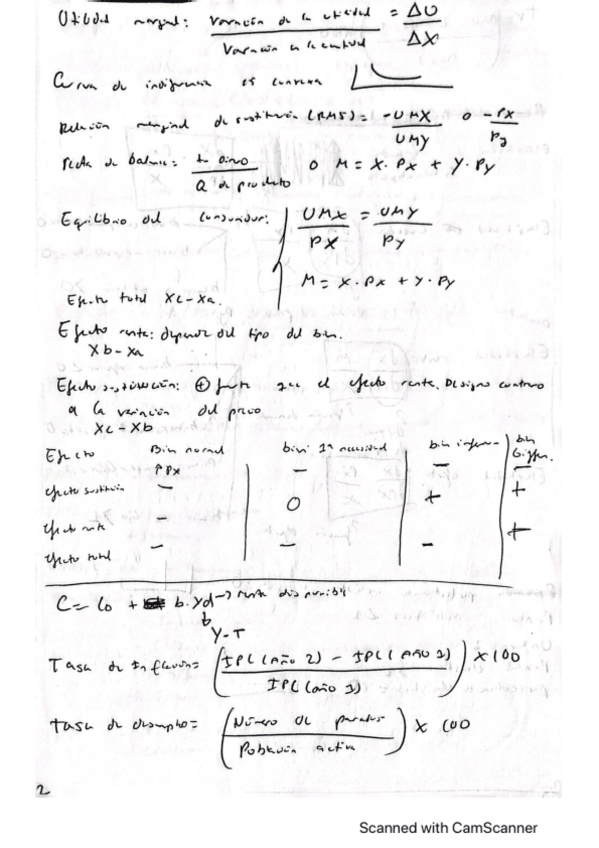 Utilidad marginal: Variación de la utilidad / Variación en la cantidad = ΔU / ΔX
Curva de indiferencia es convexa
Relación marginal de sustitución (RMS) = -UMX / UMY o -Px / Py
Recta de balance = / Q de producto o M = X · Px + Y · Py
Equilibrio del consumidor: UMx / PX = UMY / PY
M = X · Px + Y · Py
Efecto total Xc - Xa.
Efecto renta: depende del tipo de bien.
Xb - Xa
Efecto sustitución: ⊕ fuerte que el efecto renta. De signo contrario
a la variación del precio
Xc - Xb
Efecto Bien normal bien 1ª necesidad bien inferior bien Giffen.
↑Px
efecto sustitución - - - -
efecto renta - 0 + +
efecto total - - - +
C = Co + b · Yd → renta disponible
Y-T
Tasa de Inflación = (IPC (Año 2) - IPC (Año 1) / IPC (año 1)) X 100
Tasa de desempleo = (Número de parados / Población activa) X 100
2
Scanned with CamScanner